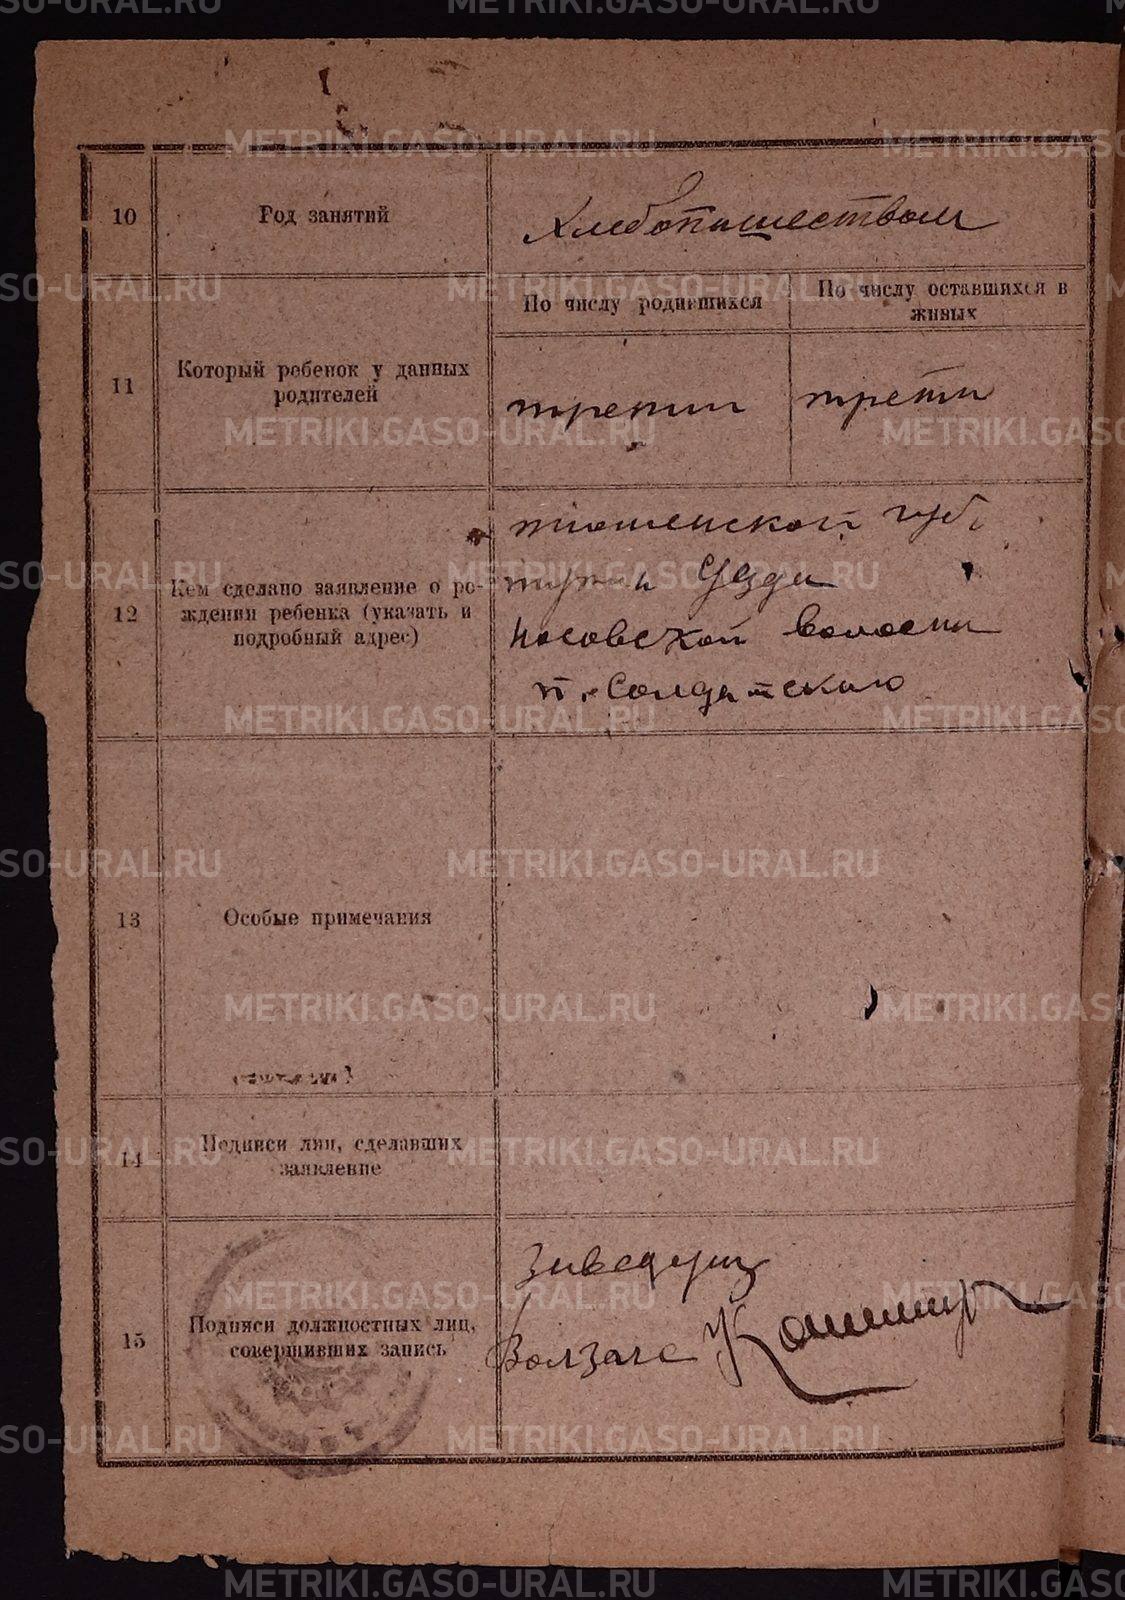 10
Род занятий
хлебопашеством
11
Который ребенок у данных
родителей
По числу родившихся
По числу оставшихся в
живых
третий
трети
12
Кем сделано заявление о ро-
ждении ребенка (указать и
подробный адрес)
тюменской губ.
Уезда
Носовской волости
п. Солдатского
13
Особые примечания
14
Подписи лиц, сделавших
заявление
15
Подписи должностных лиц,
совершивших запись
Заведущ
Волзагс
METRIKI.GASO-URAL.RU